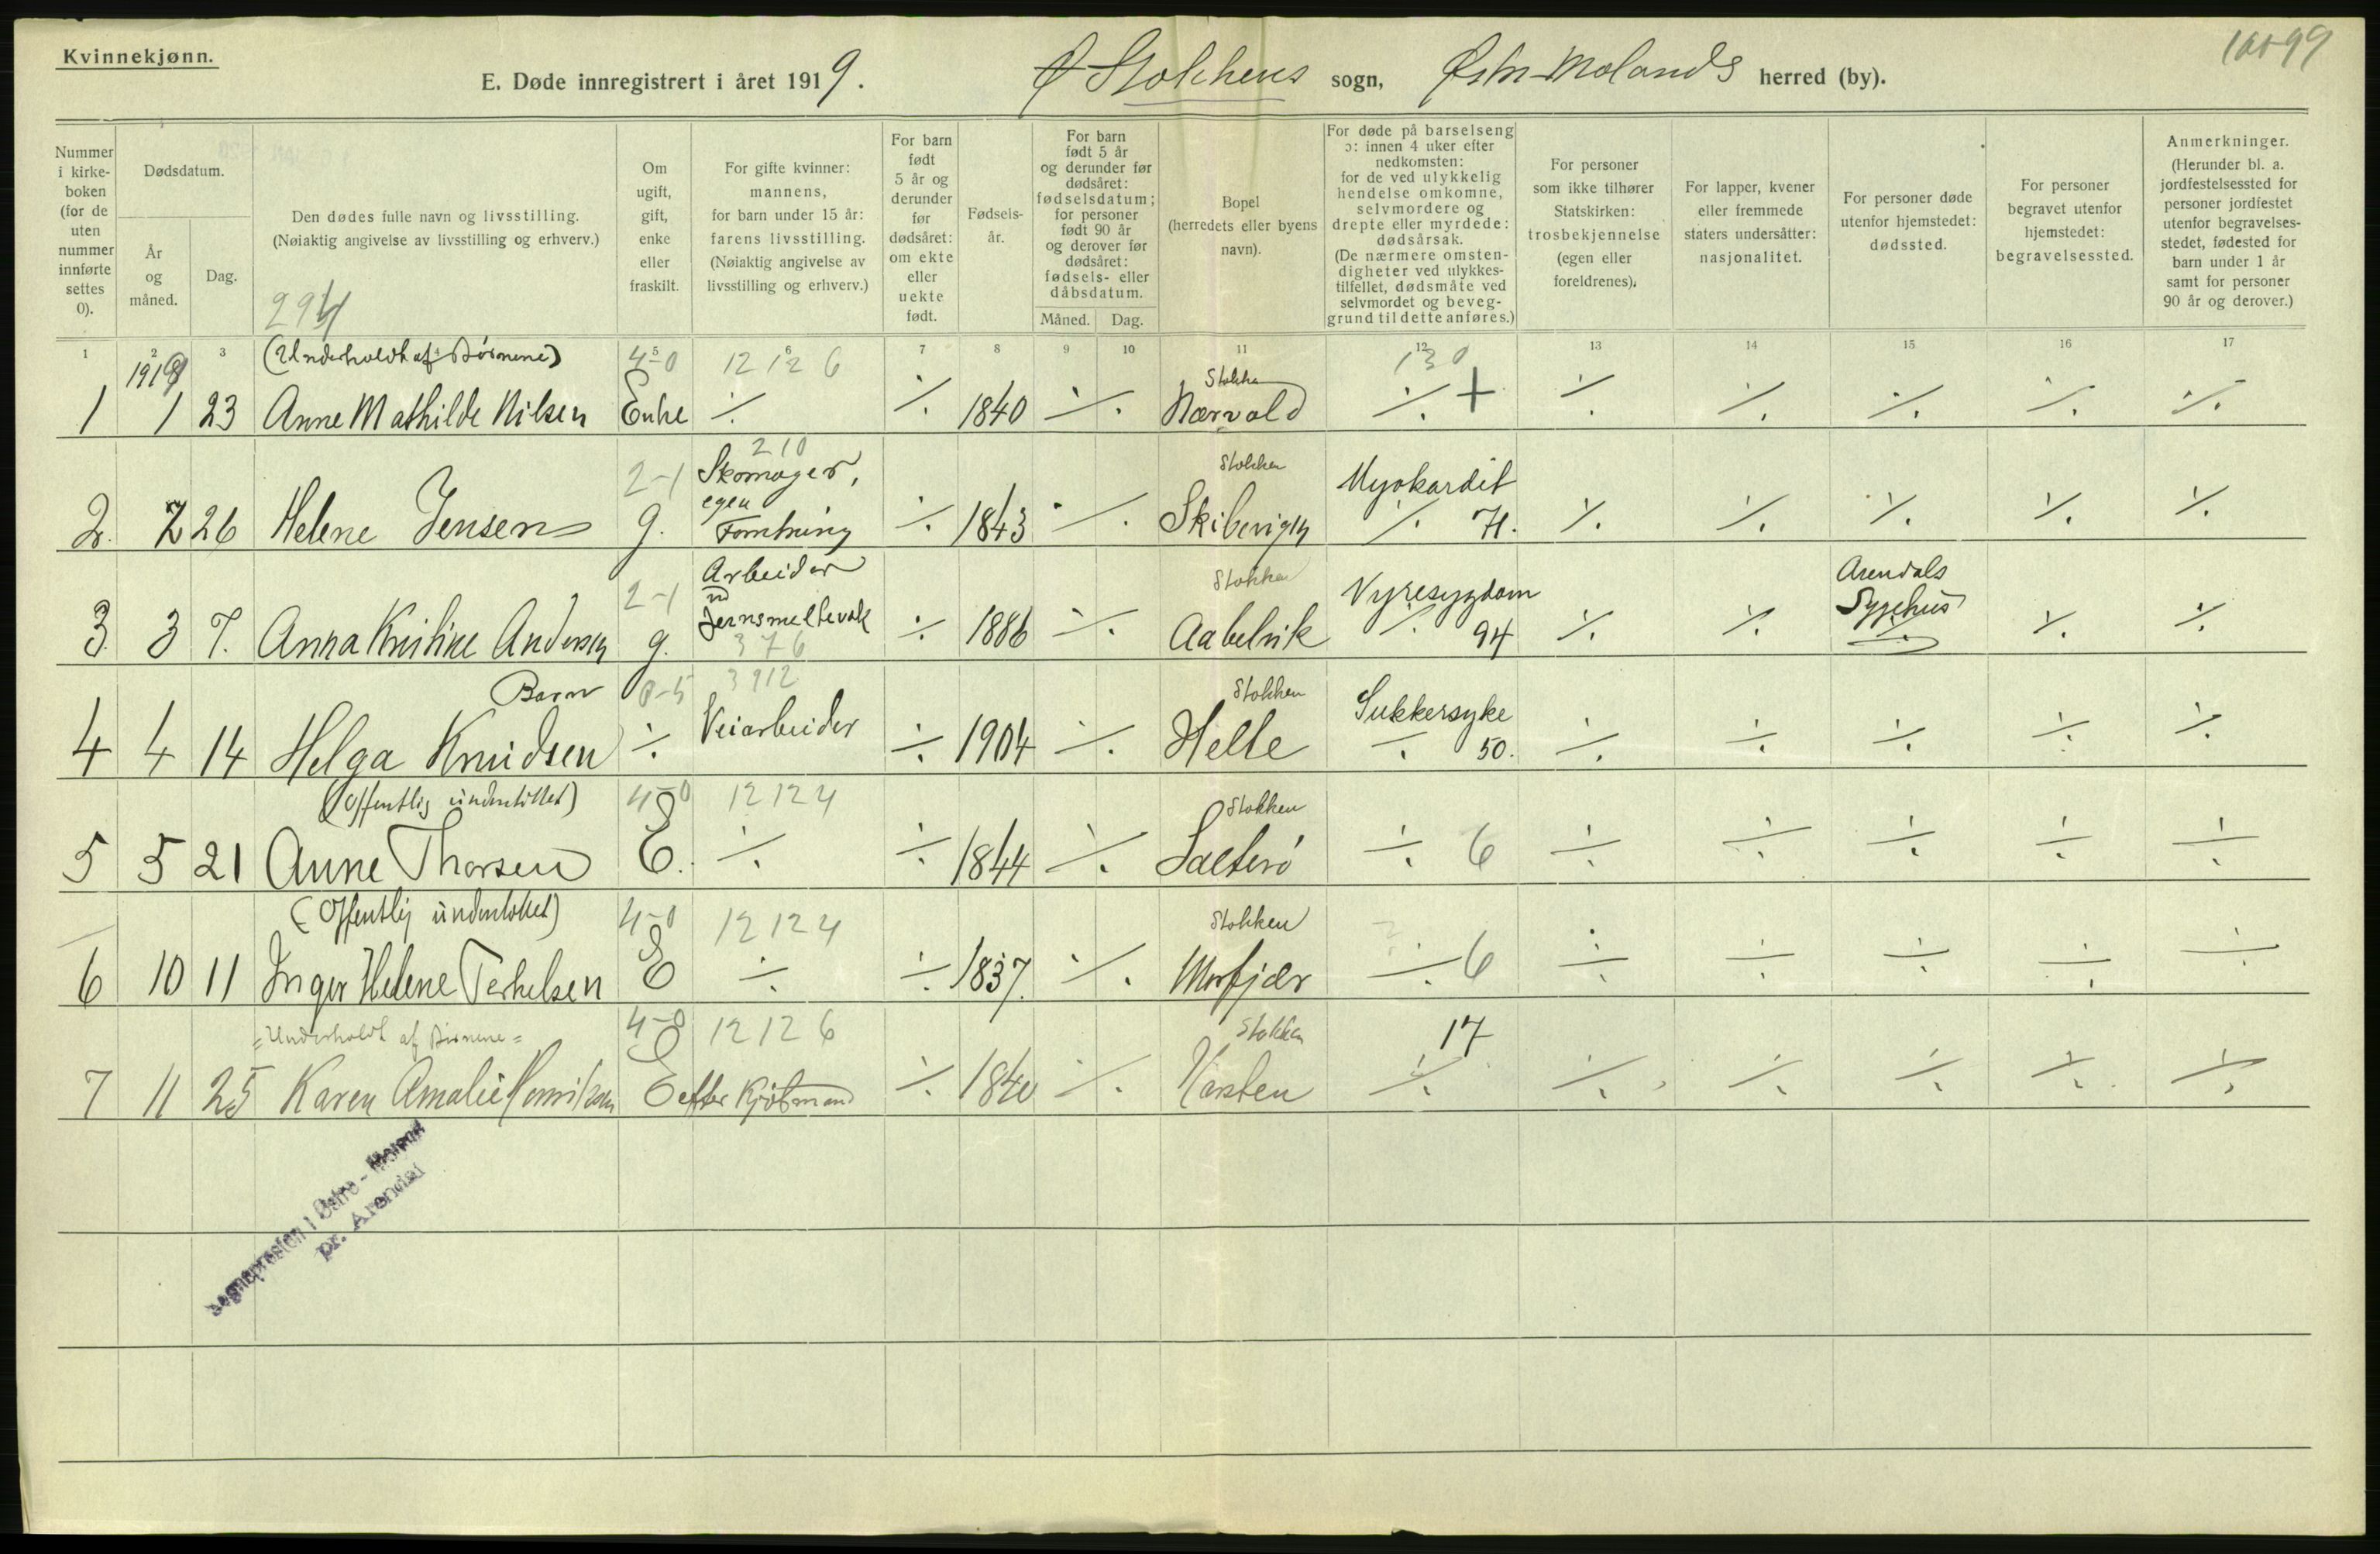 Kvinnekjønn.
10099
E. Døde innregistrert i året 1919. Stokkens sogn, Østre-Molands herred (by).
Nummer i kirke- boken (for de uten nummer innførte settes 0).
Dødsdatum.
År og måned.
Dag.
Den dødes fulle navn og livsstilling.
(Nøiaktig angivelse av livsstilling og erhverv.)
294
Om ugift, gift, enke eller fraskilt.
For gifte kvinner: mannens, for barn under 15 år: farens livsstilling.
(Nøiaktig angivelse av livsstilling og erhverv.)
For barn født 5 år og derunder før dødsåret: om ekte eller uekte født.
Fødsels- år.
For barn født 5 år og derunder før dødsåret: fødselsdatum; for personer født 90 år og derover før dødsåret: fødsels- eller dåbsdatum.
Måned. Dag.
Bopel (herredets eller byens navn).
For døde på barselseng ɔ: innen 4 uker efter nedkomsten: for de ved ulykkelig hendelse omkomne, selvmordere og drepte eller myrdede: dødsårsak.
(De nærmere omsten- digheter ved ulykkes- tilfellet, dødsmåte ved selvmordet og beveg- grund til dette anføres.)
For personer som ikke tilhører Statskirken: trosbekjennelse (egen eller foreldrenes).
For lapper, kvener eller fremmede staters undersåtter: nasjonalitet.
For personer døde utenfor hjemstedet: dødssted.
For personer begravet utenfor hjemstedet: begravelsessted.
Anmerkninger.
(Herunder bl. a. jordfestelsessted for personer jordfestet utenfor begravelses- stedet, fødested for barn under 1 år samt for personer 90 år og derover.)
1 2 3 5 6 7 8 9 10 11 12 13 14 15 16 17
1919 (Underholdt af Børnene) 4-0 12 12 6 Stokken 130
1 1 23 Anne Mathilde Nilsen Enke ⁒ ⁒ 1840 ⁒ Narvold ⁒ + ⁒ ⁒ ⁒ ⁒ ⁒
210
2-1 Skomager, Stokken Myokardit
egen
2. 2 26 Helene Jensen g. Forretning ⁒ 1843 ⁒ Skibevigen ⁒ 71. ⁒ ⁒ ⁒ ⁒ ⁒
2-1 Arbeider Stokken Nyresygdom Arendals
v/ Jernsmelteverk Sygehus
3. 3 7. Anna Kristine Andersen g. 376 ⁒ 1886 ⁒ Aabelvik ⁒ 94 ⁒ ⁒ ⁒ ⁒ ⁒
Barn 0-5 3912 Stokken Sukkersyke
4 4 14 Helga Knudsen ÷ Veiarbeider ÷ 1904 ⁒ Helle ÷ 50. ⁒ ÷ ÷ ÷ ⁒
(Offentlig understøttet) 4-0 12 12 4 Stokken
5 5 21 Anne Thorsen E. ⁒ ÷ 1844 ⁒ Salterø ÷ 6 ÷ ÷ ÷ ÷ ÷
(Offentlig understøttet) 4-0 12 12 4 Stokken
6 10 11 Inger Helene Terkelsen E ÷ ÷ 1837. ⁒ Morfjær ÷ 6 ÷ ÷ ÷ ÷ ÷
=Underholdt af Børnene= 4-0 12 12 6 Stokken 17
7 11 25 Karen Amalie Henriksen E efter Kjøbmand ⁒ 1840 ⁒ Varsten ⁒ ⁒ ⁒ ⁒ ⁒ ⁒
Sognepresten i Østre-Moland
pr. Arendal